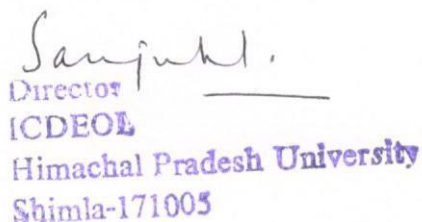 Director
ICDEOL
Himachal Pradesh University
Shimla-171005